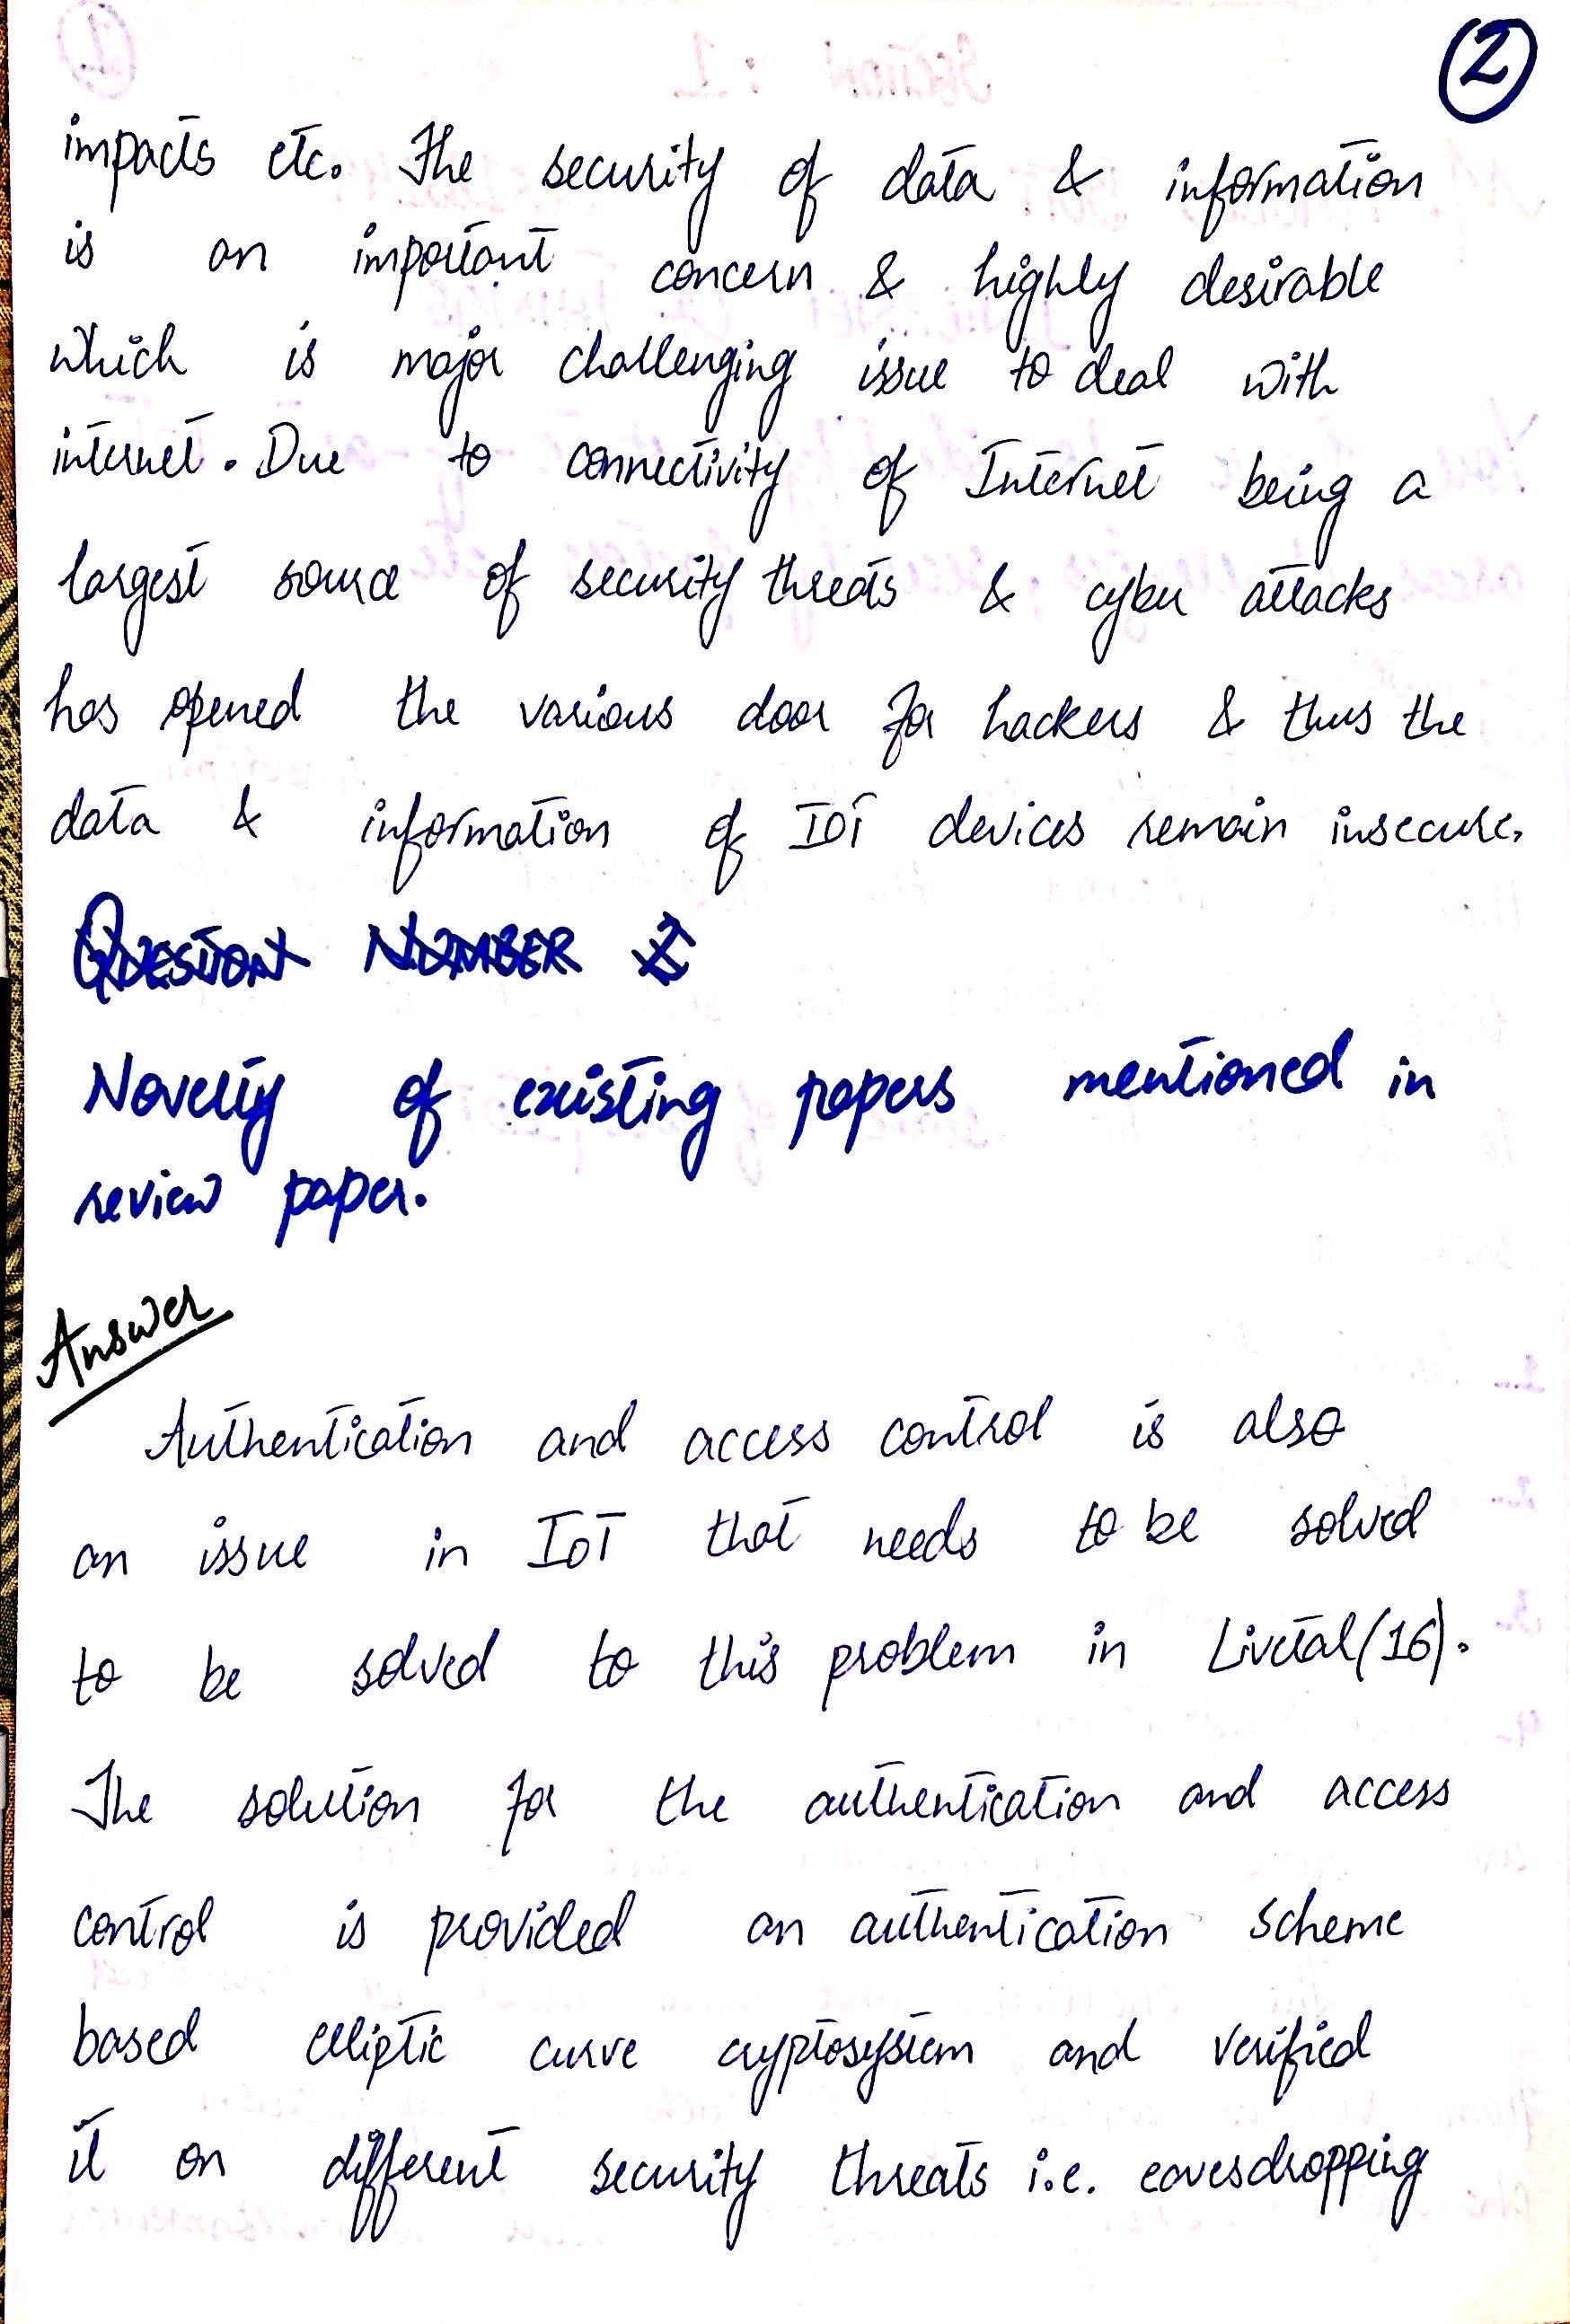 2
impacts etc. The security of data & information
is an important concern & highly desirable
which is major challenging issue to deal with
internet. Due to connectivity of Internet being a
largest source of security threats & cyber attacks
has opened the various door for hackers & thus the
data & information of IOT devices remain insecure.
QUESTION NUMBER
Novelty of existing papers mentioned in
review paper.
Answer
Authentication and access control is also
an issue in IoT that needs to be solved
to be solved to this problem in Livetal(16).
The solution for the authentication and access
control is provided an authentication scheme
based elliptic curve cryptosystem and verified
it on different security threats i.e. eavesdropping